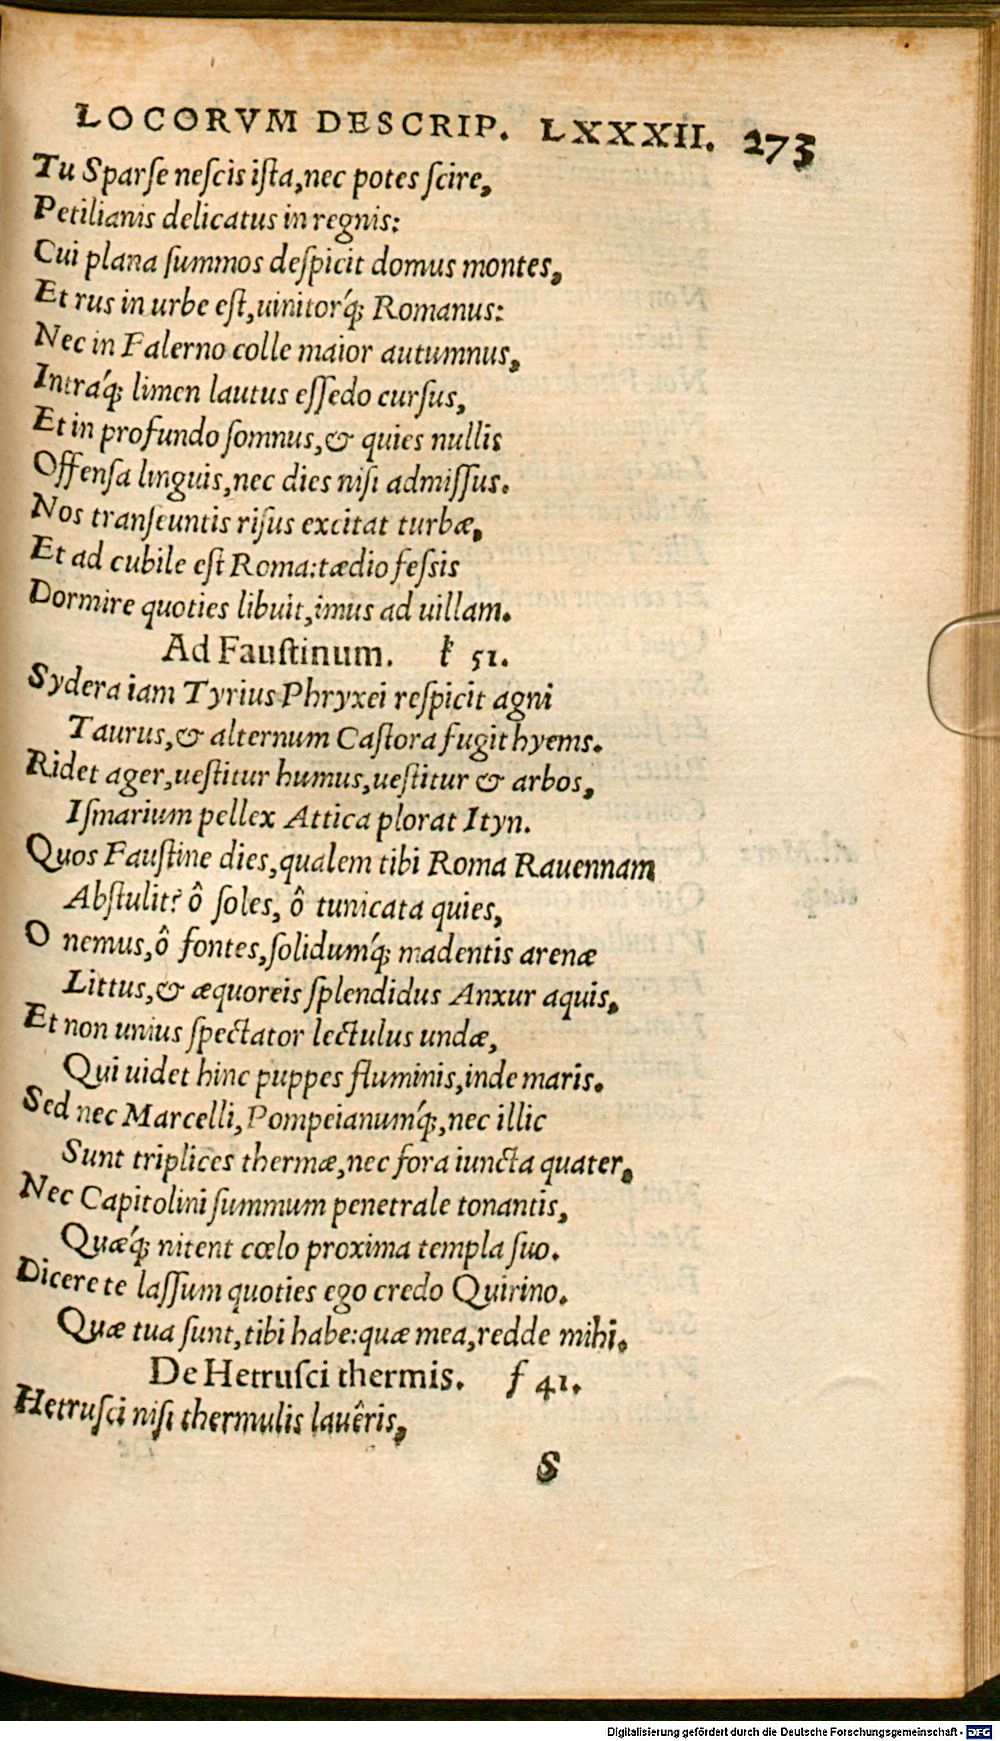 LOCORVM DESCRIP. LXXXII. 273
Tu Sparſe neſcis iſta,nec potes ſcire,
Petilianis delicatus in regnis:
Cui plana ſummos deſpicit domus montes,
Et rus in urbe eſt,uinitorq́; Romanus:
Nec in Falerno colle maior autumnus,
Intraq́; limen lautus eſſedo curſus,
Et in profundo ſomnus,& quies nullis
Offenſa linguis,nec dies niſi admiſſus.
Nos tranſeuntis riſus excitat turbæ,
Et ad cubile eſt Roma:tædio feſsis
Dormire quoties libuit,imus ad uillam.
Ad Fauſtinum. k 51.
Sydera iam Tyrius Phryxei reſpicit agni
Taurus,& alternum Caſtora fugit hyems.
Ridet ager,ueſtitur humus,ueſtitur & arbos,
Iſmarium pellex Attica plorat Ityn.
Quos Fauſtine dies,qualem tibi Roma Rauennam
Abſtulit? ô ſoles, ô tunicata quies,
O nemus,ô fontes,ſolidumq́; madentis arenæ
Littus,& æquoreis ſplendidus Anxur aquis,
Et non unius ſpectator lectulus undæ,
Qui uidet hinc puppes fluminis,inde maris.
Sed nec Marcelli,Pompeianumq́;,nec illic
Sunt triplices thermæ,nec fora iuncta quater,
Nec Capitolini ſummum penetrale tonantis,
Quæq́; nitent cœlo proxima templa ſuo.
Dicere te laſſum quoties ego credo Quirino.
Quæ tua ſunt,tibi habe:quæ mea,redde mihi.
De Hetruſci thermis. f 41.
Hetruſci niſi thermulis lauêris,
S
Digitalisierung gefördert durch die Deutsche Forschungsgemeinschaft - DFG